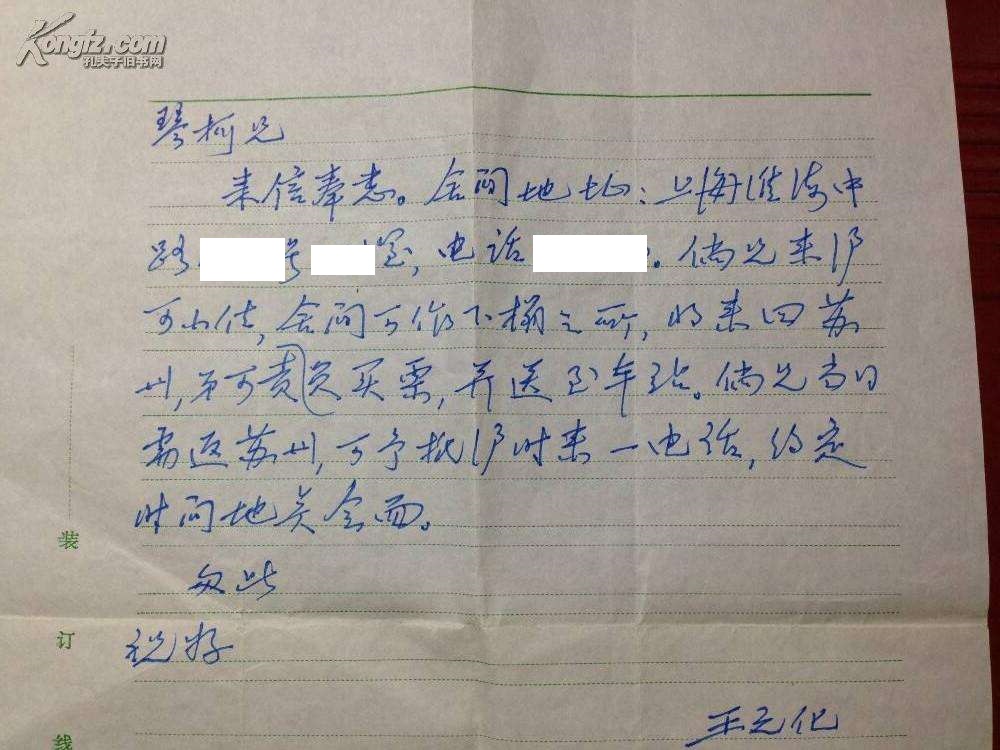 Kongfz.com
孔夫子旧书网
琴柯兄
来信奉悉。舍间地址：上海淮海中
路 号 室，电话 。倘兄来沪
可小住，舍间可作下榻之所，将来回苏
州，弟可责负买票，并送至车站。倘兄当日
需返苏州，可于抵沪时来一电话，约定
时间地点会面。
匆此
祝好
王元化
装
订
线